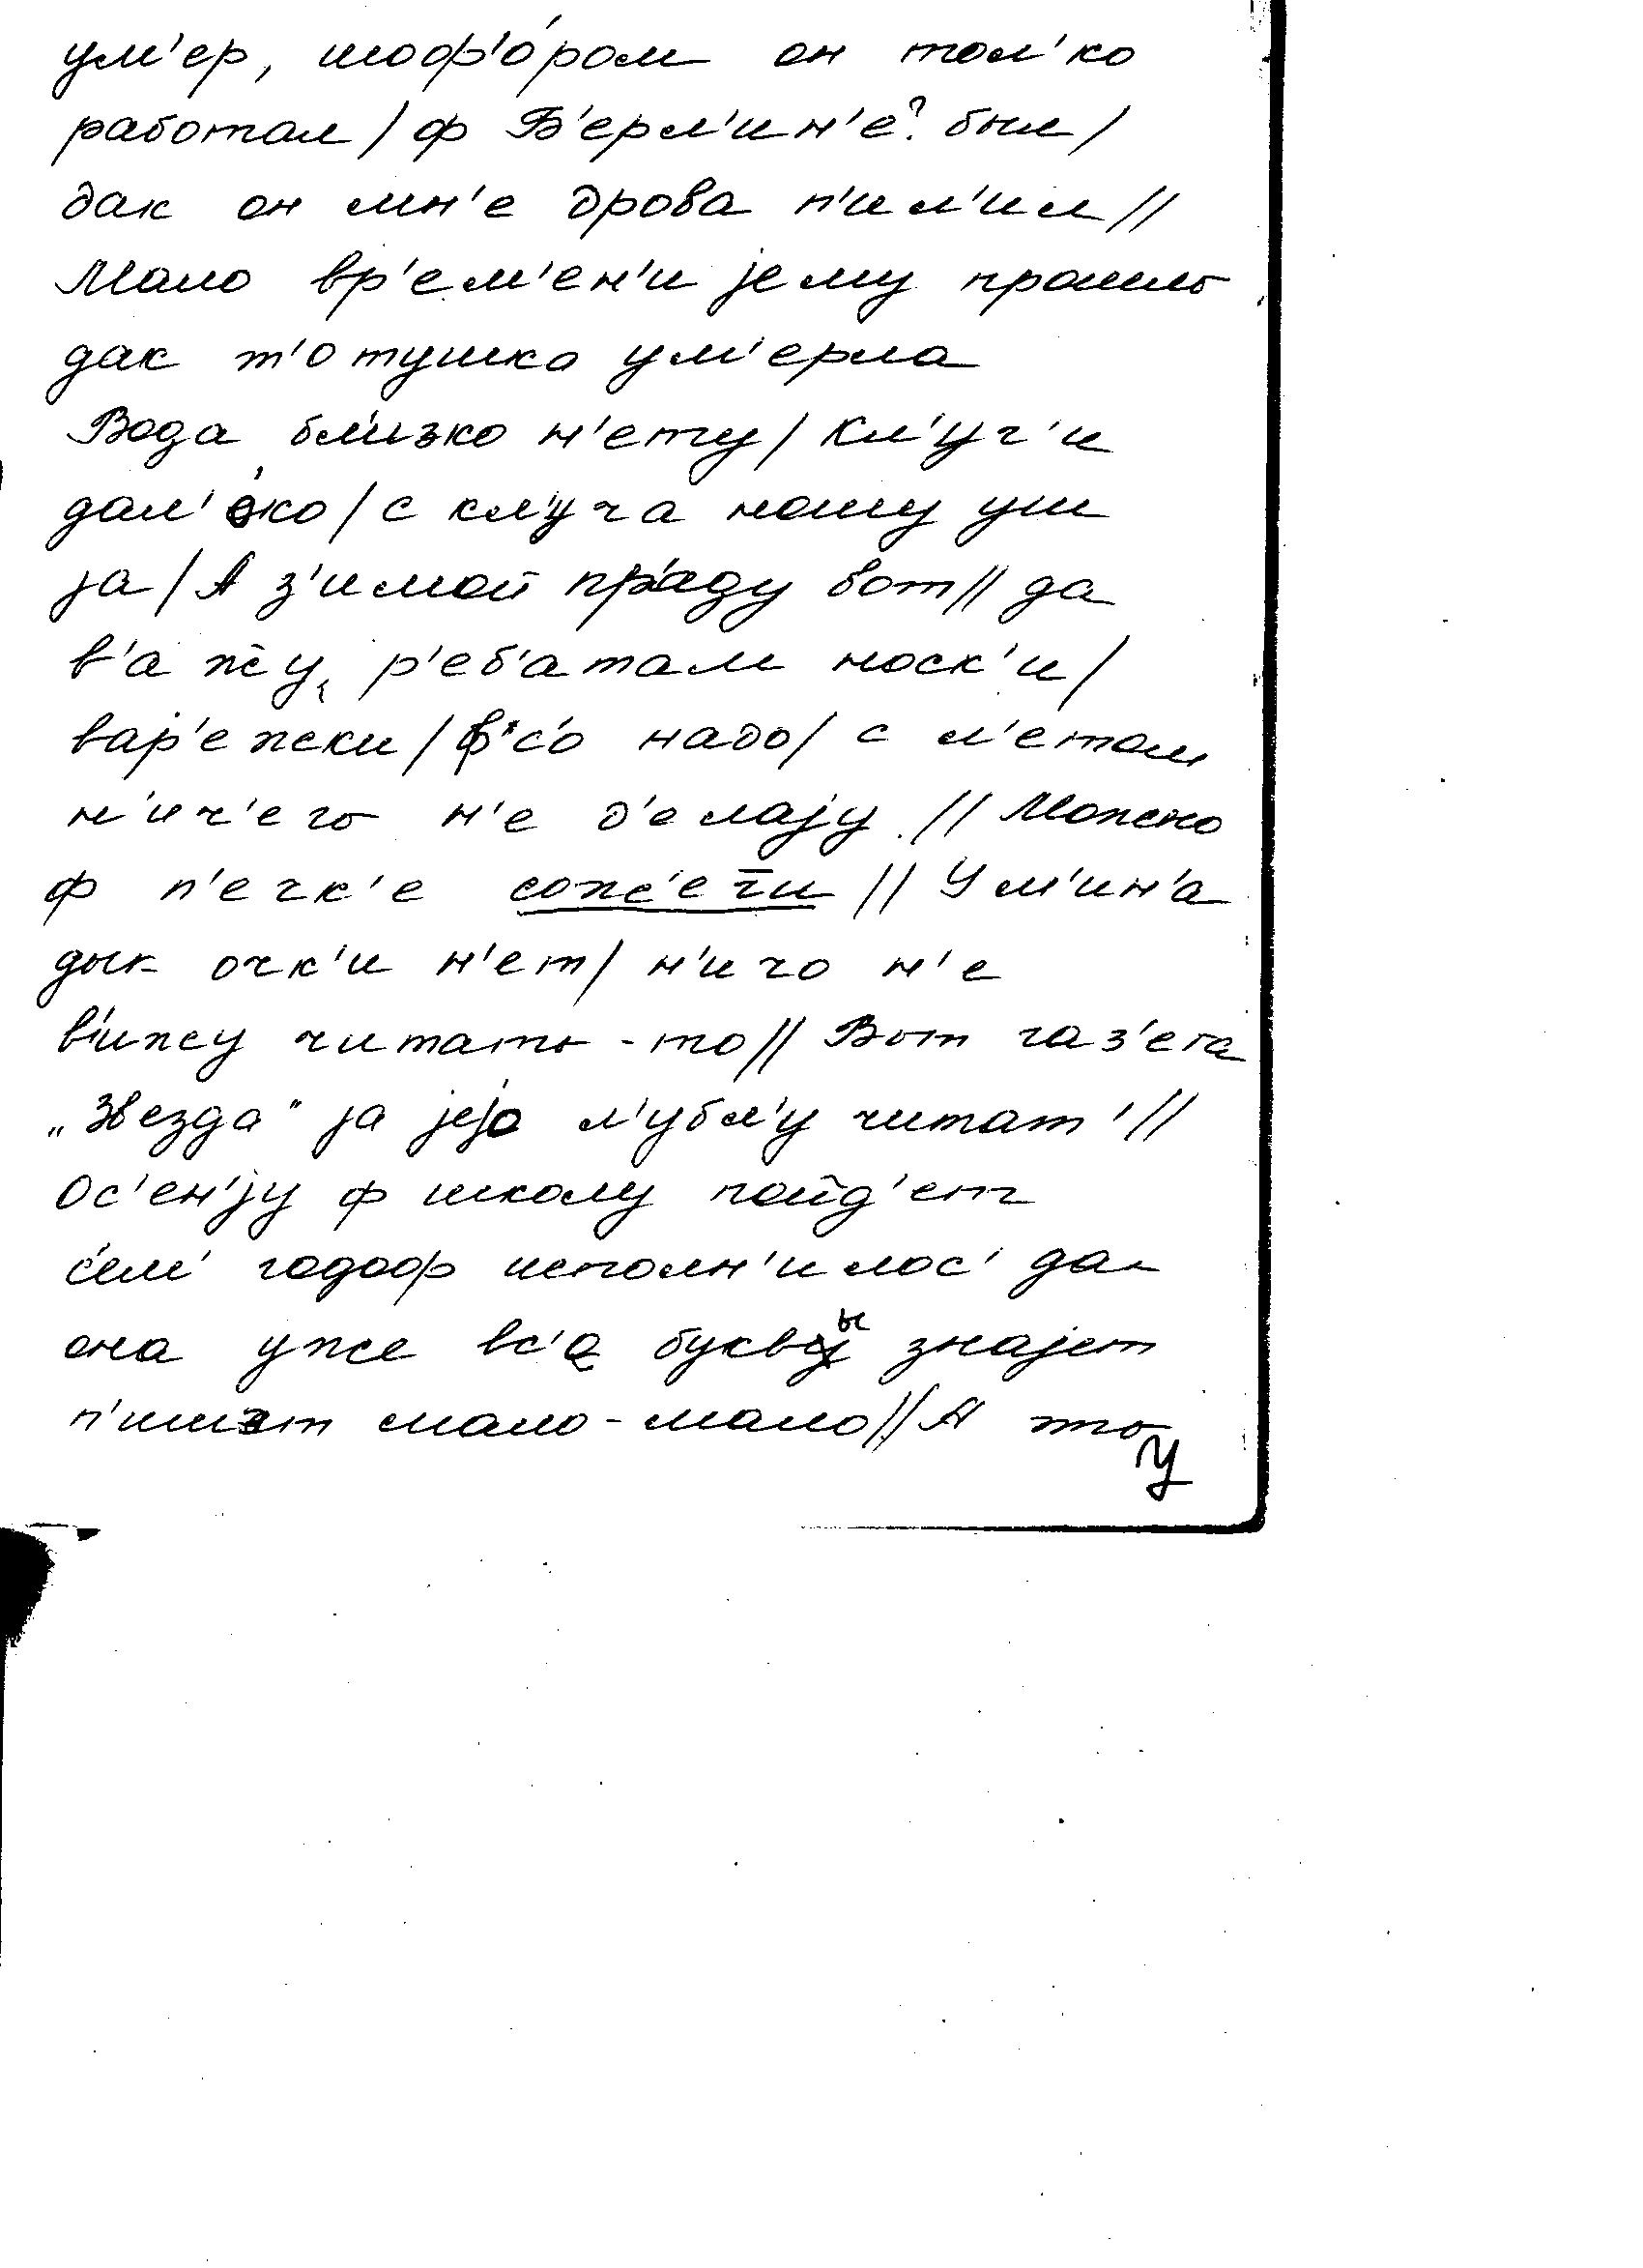 ум'ер, шоф'óром он тол'ко
работал / ф Б'ерл'ин'е? был /
дак он мн'е дрова п'ил'ил //
Мало вр'ем'ен'и јему прошлъ
дак т'отушка ум'ерла
Вода бл'изко н'ету / Кл'уч'и
дал'око / с кл'уча ношу уш
ја / А з'имой пр'аду вот // да
в'ажу, р'еб'атам носк'и /
вар'ежки / ф*с'о надо / с л'етам
н'ич'егъ н'е д'елају // Можно
ф п'ечк'е сож'ечи // У м'ин'а
дык очк'и н'ет / н'ичо н'е
в'ижу читать-то // Вът газ'ета
„Звезда" ја јејо л'убл'у читат' //
Ос'ен'ју ф школу пойд'ет
с'ем' годоф исполн'илос' да
она уже вс'е буквы знајет
п'ишэт мало-мало // А то
у